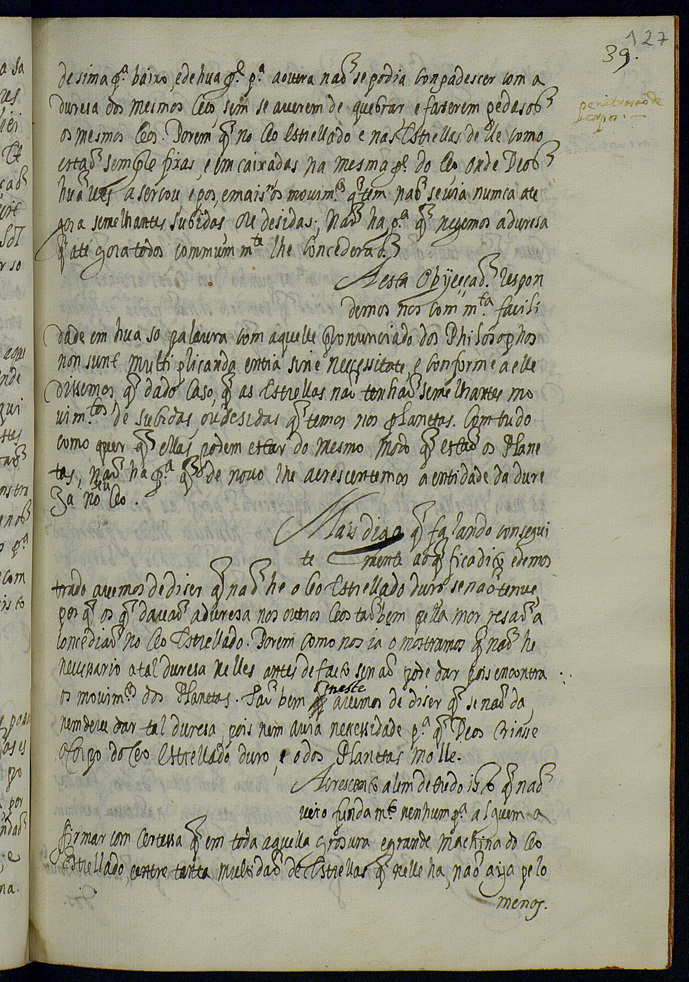 127
39.
de sima p.ª baixo, e de hua p.te p.ª a outra naõ se podia compadescer com a
duresa dos mesmos Ceos sem se averem de quebrar e faserem pedasos
os mesmos Ceos. Porem q no Ceo Estrellado e nas Estrellas delle como
estaõ sempre fixas, e emcaixadas na mesma p.te do Ceo onde Deos
hua ves a sercou e pos, e mais os movim.tos q tem naõ se viu numca ate
gora semelhantes subidas ou desidas; Naõ ha p.ª q negemos a duresa
q ate gora todos commum m.te lhe concederaõ.
A esta Obijeçaõ respon
demos nos com m.ta facili
dade em hua so palavra com aquelle pronunciado dos Philosophos
non sunt multiplicanda entia sine necessitate, e conforme a elle
disemos q dado caso q as Estrellas naõ tenhaõ semelhantes mo
vim.tos de subidas ou desidas q temos nos planetas. Comtudo
como quer q ellas podem estar do mesmo modo q estaõ os Plane
tas, naõ ha p.ª q de novo lhe acrescentemos a entidade da dure
za no seu Ceo.
Mais digo q falando consequi
te mente ao q fica dito e demos
trado avemos de diser q naõ he o Ceo Estrellado duro, se naõ tenue
por q os q davaõ a duresa nos outros Ceos taõbem pella mor resaõ a
concediaõ no Ceo Estrellado. Porem como nos ia o mostramos q naõ he
necessario a tal duresa nelles antes de facto se naõ pode dar pois encontra
os movim.tos dos Planetas. Taõ bem neste avemos de diser q se naõ da,
nem deve dar tal duresa, pois nem avia necessidade p.ª q Deos criase
o Corpo do Ceo Estrellado duro, e o dos Planetas molle.
Acrescento alem de tudo isto q naõ
vejo fundam.to nenhum p.ª alguem a
firmar com certessa q em toda aquella grosura e grande machina do Ceo
Estrellado, entre tanta multidaõ de Estrellas q nelle ha, naõ aija pelo
menos.